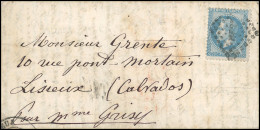 Monsieur Grente
10 rue pont-mortain
Lisieux (Calvados)
pour mme Grisy